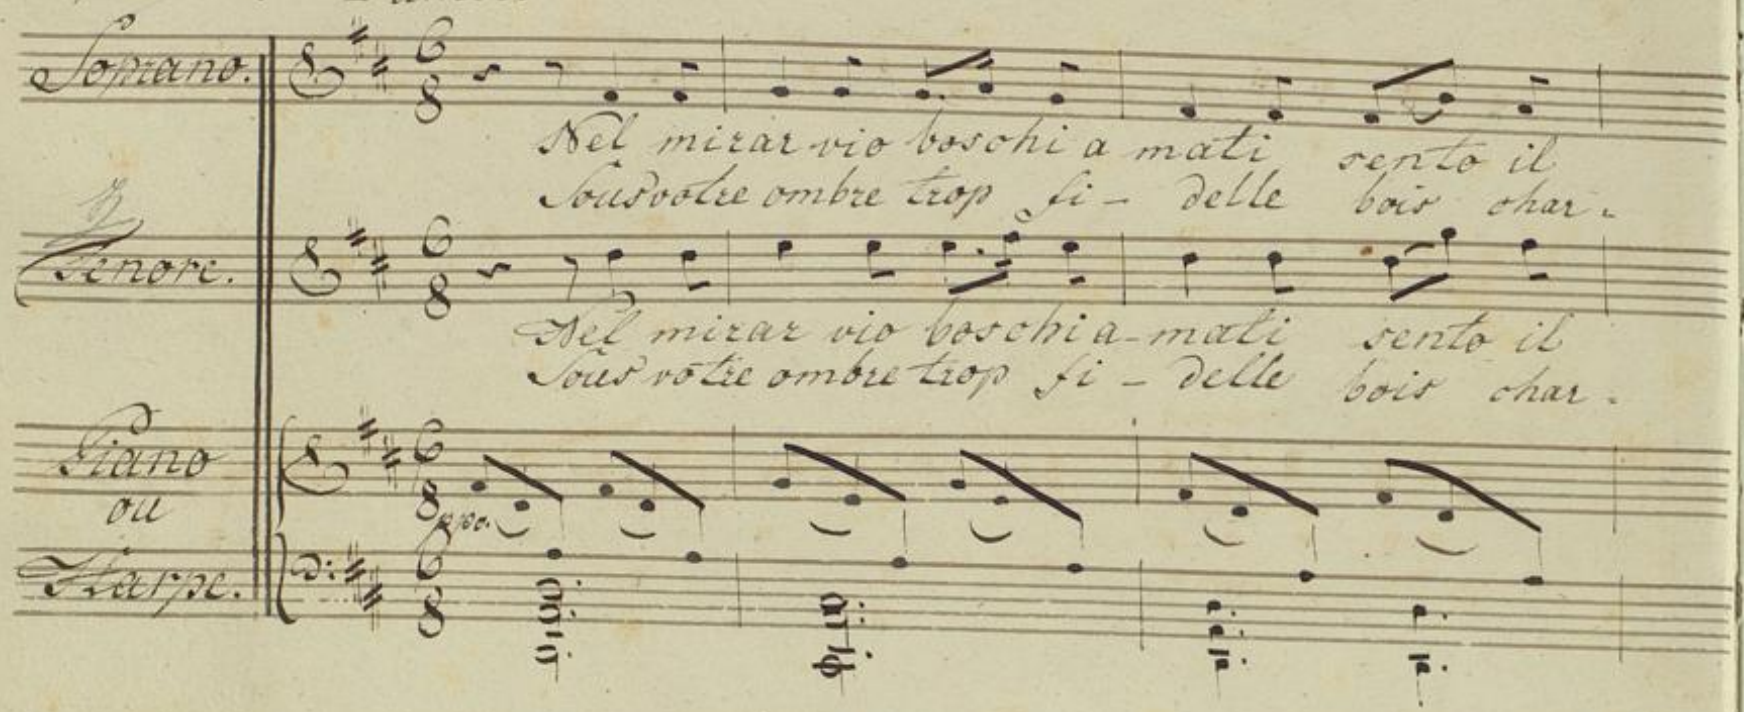 Soprano.
6
8
Nel mirar vio boschi a mati sento il
Sous votre ombre trop fi - delle bois char -
Tenore.
6
8
Nel mirar vio boschi a - mati sento il
Sous votre ombre trop fi - delle bois char -
Piano
ou
Harpe.
6
8
ppo.
6
8